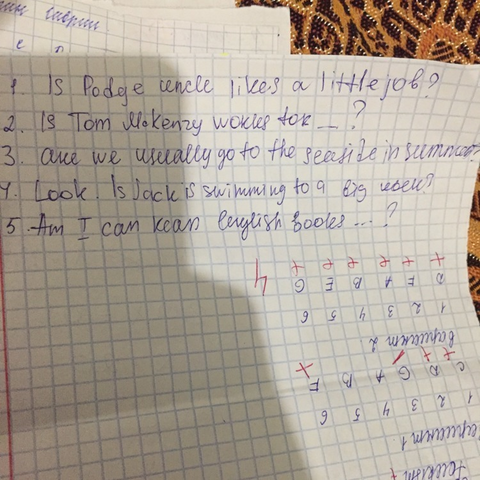 1. Is Podge uncle likes a little job?
2. Is Tom McKenzy works for ... ?
3. are we usually go to the seaside in summer
4. Look. Is Jack is swimming to a big
5. Am I can English books ... ?
4
D F A B E G
1 2 3 4 5 6
Вариант 2
C D G A B F
1 2 3 4 5 6
Вариант 1